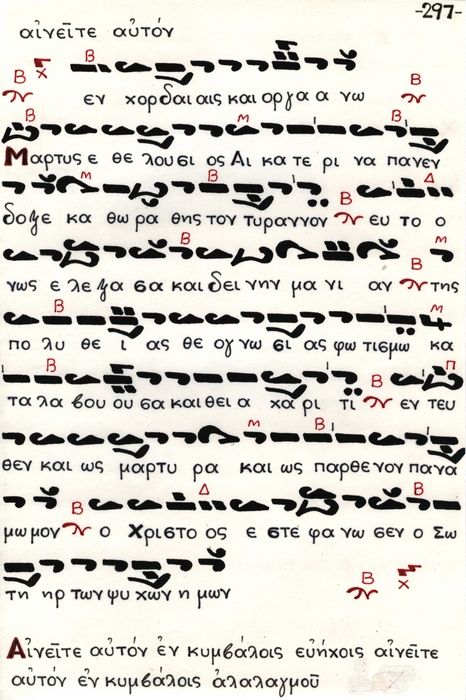 -297-
αἰνεῖτε αὐτόν
εν χορδαι αις και οργα α νω
Μαρτυς ε θε λουσι ος Αι κα τε ρι να πανευ
δοξε κα θω ρα θης τον τυραννον ευ το ο
νως ε λε γξα σα και δει νην μα νι αν της
πο λυ θε ι ας θε ογ νω σι ας φω τισμω κα
τα λα βου ου σα και θει α χα ρι τι εν τευ
θεν και ως μαρτυ ρα και ως παρθενον πανα
μωμον ο Χριστο ος ε στε φα νω σεν ο Σω
τη ηρ των ψυ χων η μων
Αἰνεῖτε αὐτόν ἐν κυμβάλοις εὐήχοις αἰνεῖτε
αὐτόν ἐν κυμβάλοις ἀλαλαγμοῦ